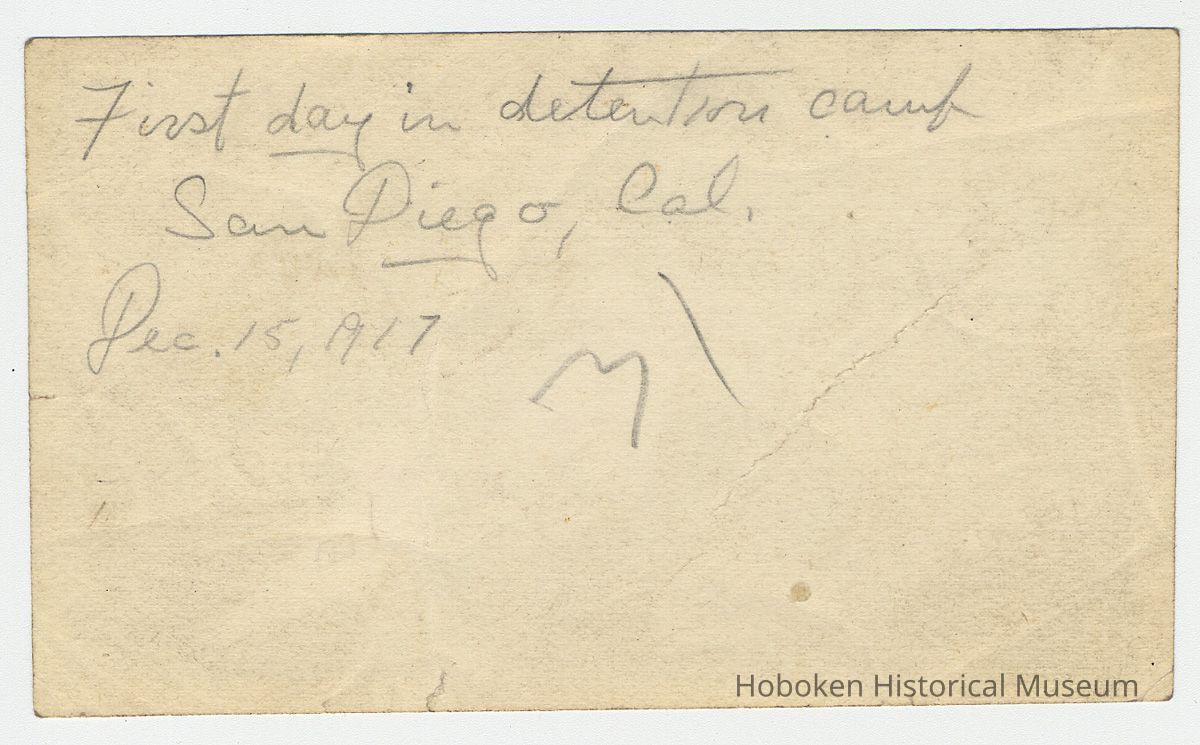 First day in detention camp
San Diego, Cal.
Dec. 15, 1917
Hoboken Historical Museum